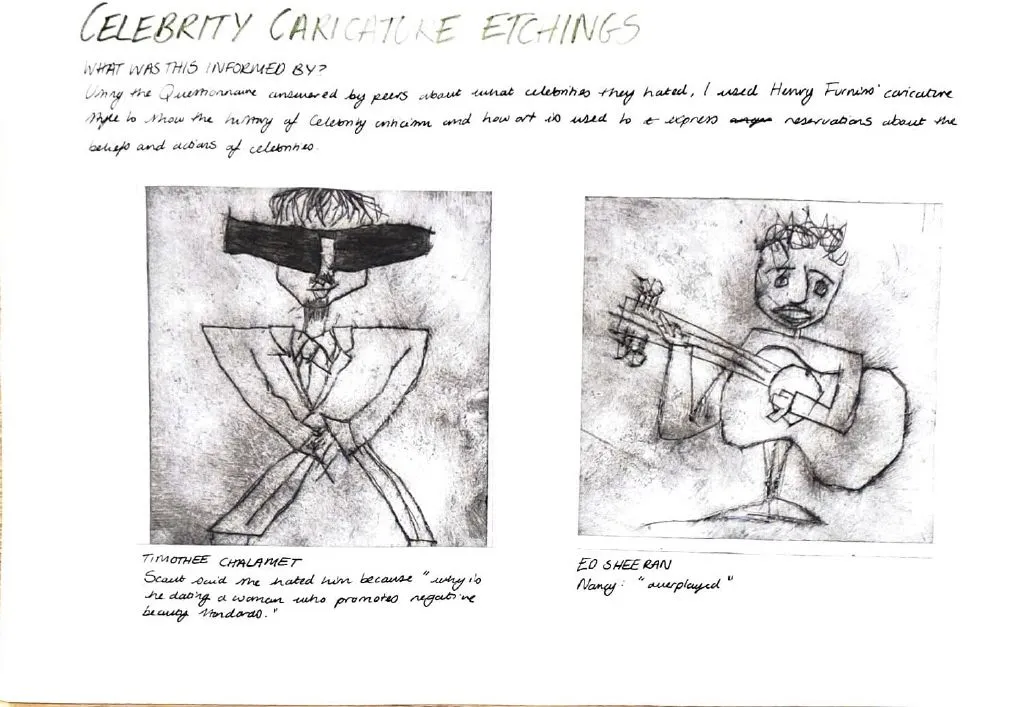 CELEBRITY CARICATURE ETCHINGS
WHAT WAS THIS INFORMED BY?
Using the Questionnaire answered by peers about what celebrities they hated, I used Henry Furniss' caricature
style to show the history of Celebrity criticism and how art is used to express reservations about the
beliefs and actions of celebrities.
TIMOTHEE CHALAMET
Scout said she hated him because "why is
he dating a woman who promotes negative
beauty standards."
ED SHEERAN
Nancy: "overplayed"